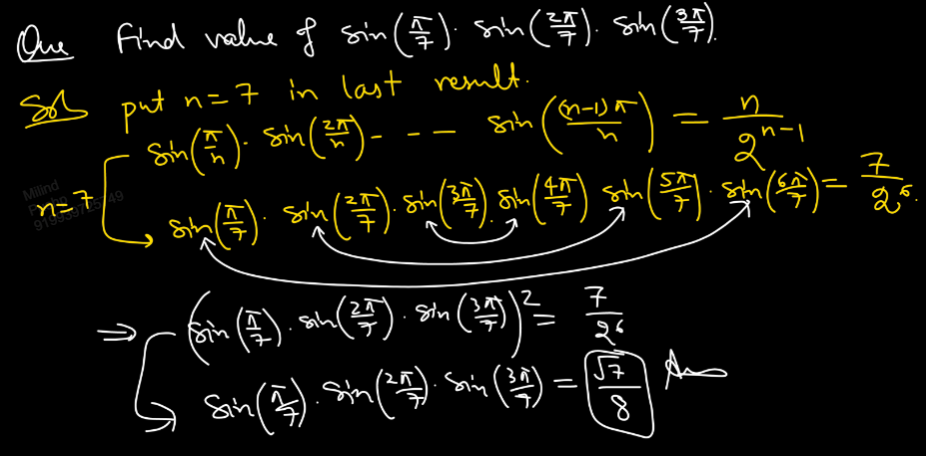 Que Find value of sin(π/7). sin(2π/7). sin(3π/7).
Sol put n=7 in last result.
sin(π/n). sin(2π/n)- - - - sin((n-1)π/n) = n/2^(n-1)
n=7
sin(π/7). sin(2π/7). sin(3π/7). sin(4π/7) sin(5π/7). sin(6π/7) = 7/2^6.
⇒ (sin(π/7). sin(2π/7). sin(3π/7))^2 = 7/2^6
sin(π/7). sin(2π/7). sin(3π/7) = √7/8 Ans